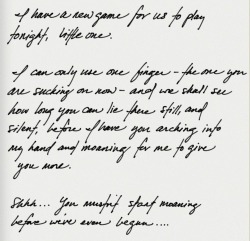 I have a new game for us to play
tonight, little one.
I can only use one finger - the one you
are sucking on now - and we shall see
how long you can lie there still, and
silent, before I have you arching into
my hand and moaning for me to give
you more.
Shhh... You mustn't start moaning
before we've even begun....